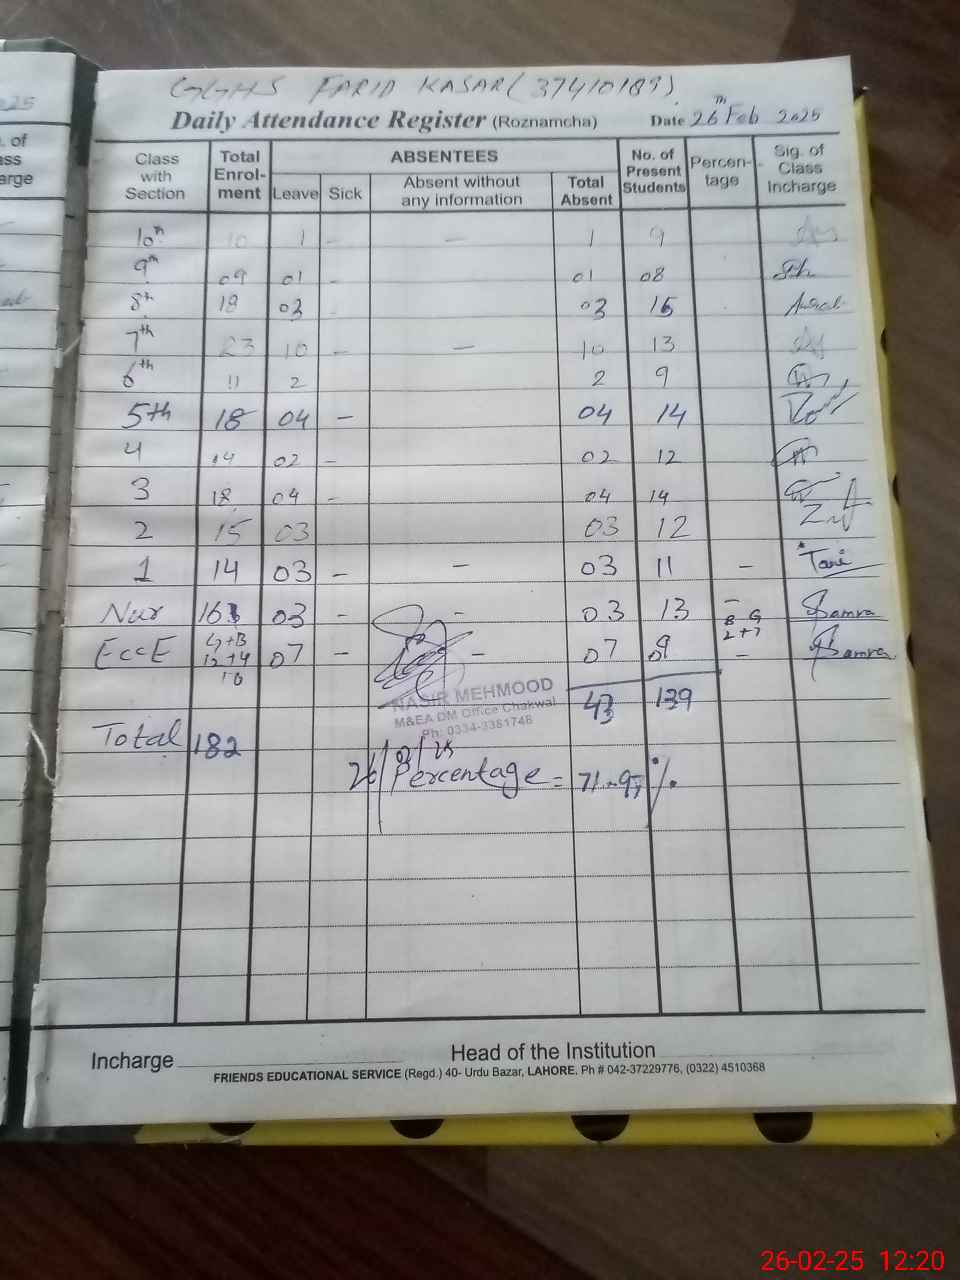 GGHS FARID KASAR (37410189)
Daily Attendance Register (Roznamcha) Date 26th Feb 2025
Class with Section Total Enrolment ABSENTEES Leave Sick Absent without any information Total Absent No. of Present Students Percentage Sig. of Class Incharge
10th 10 1 - - 1 9
9th 09 01 - 01 08
8th 18 03 03 15
7th 23 10 - - 10 13
6th 11 2 2 9
5th 18 04 - 04 14
4 14 02 - 02 12
3 18 04 - 04 14
2 15 03 03 12
1 14 03 - - 03 11 - Tani
Nur 16 03 - - 03 13 - Samra
B G
EccE G+B 07 - - 07 09 2+7 - Samra
12+4
16
NASIR MEHMOOD
M&EA DM Office Chakwal
Ph: 0334-3381748
43 139
Total 182
26/2/25
Percentage = 71.97%
Incharge Head of the Institution
FRIENDS EDUCATIONAL SERVICE (Regd.) 40- Urdu Bazar, LAHORE. Ph # 042-37229776, (0322) 4510368
26-02-25 12:20